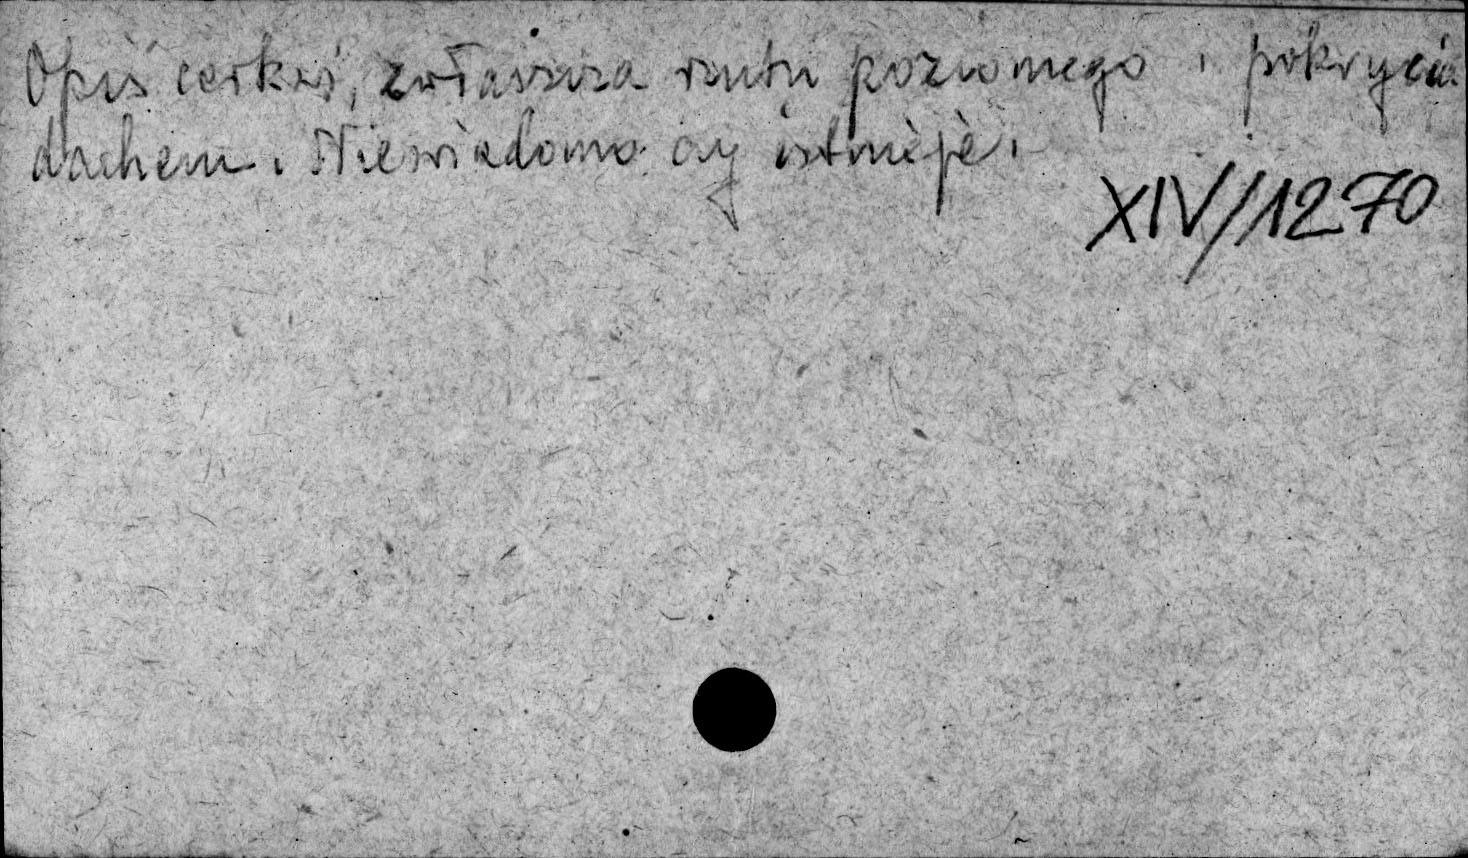 Opis cerkwi, zwłaszcza rzutu poziomego i pokrycia
dachem. Niewiadomo czy istnieje.
XIV/1270